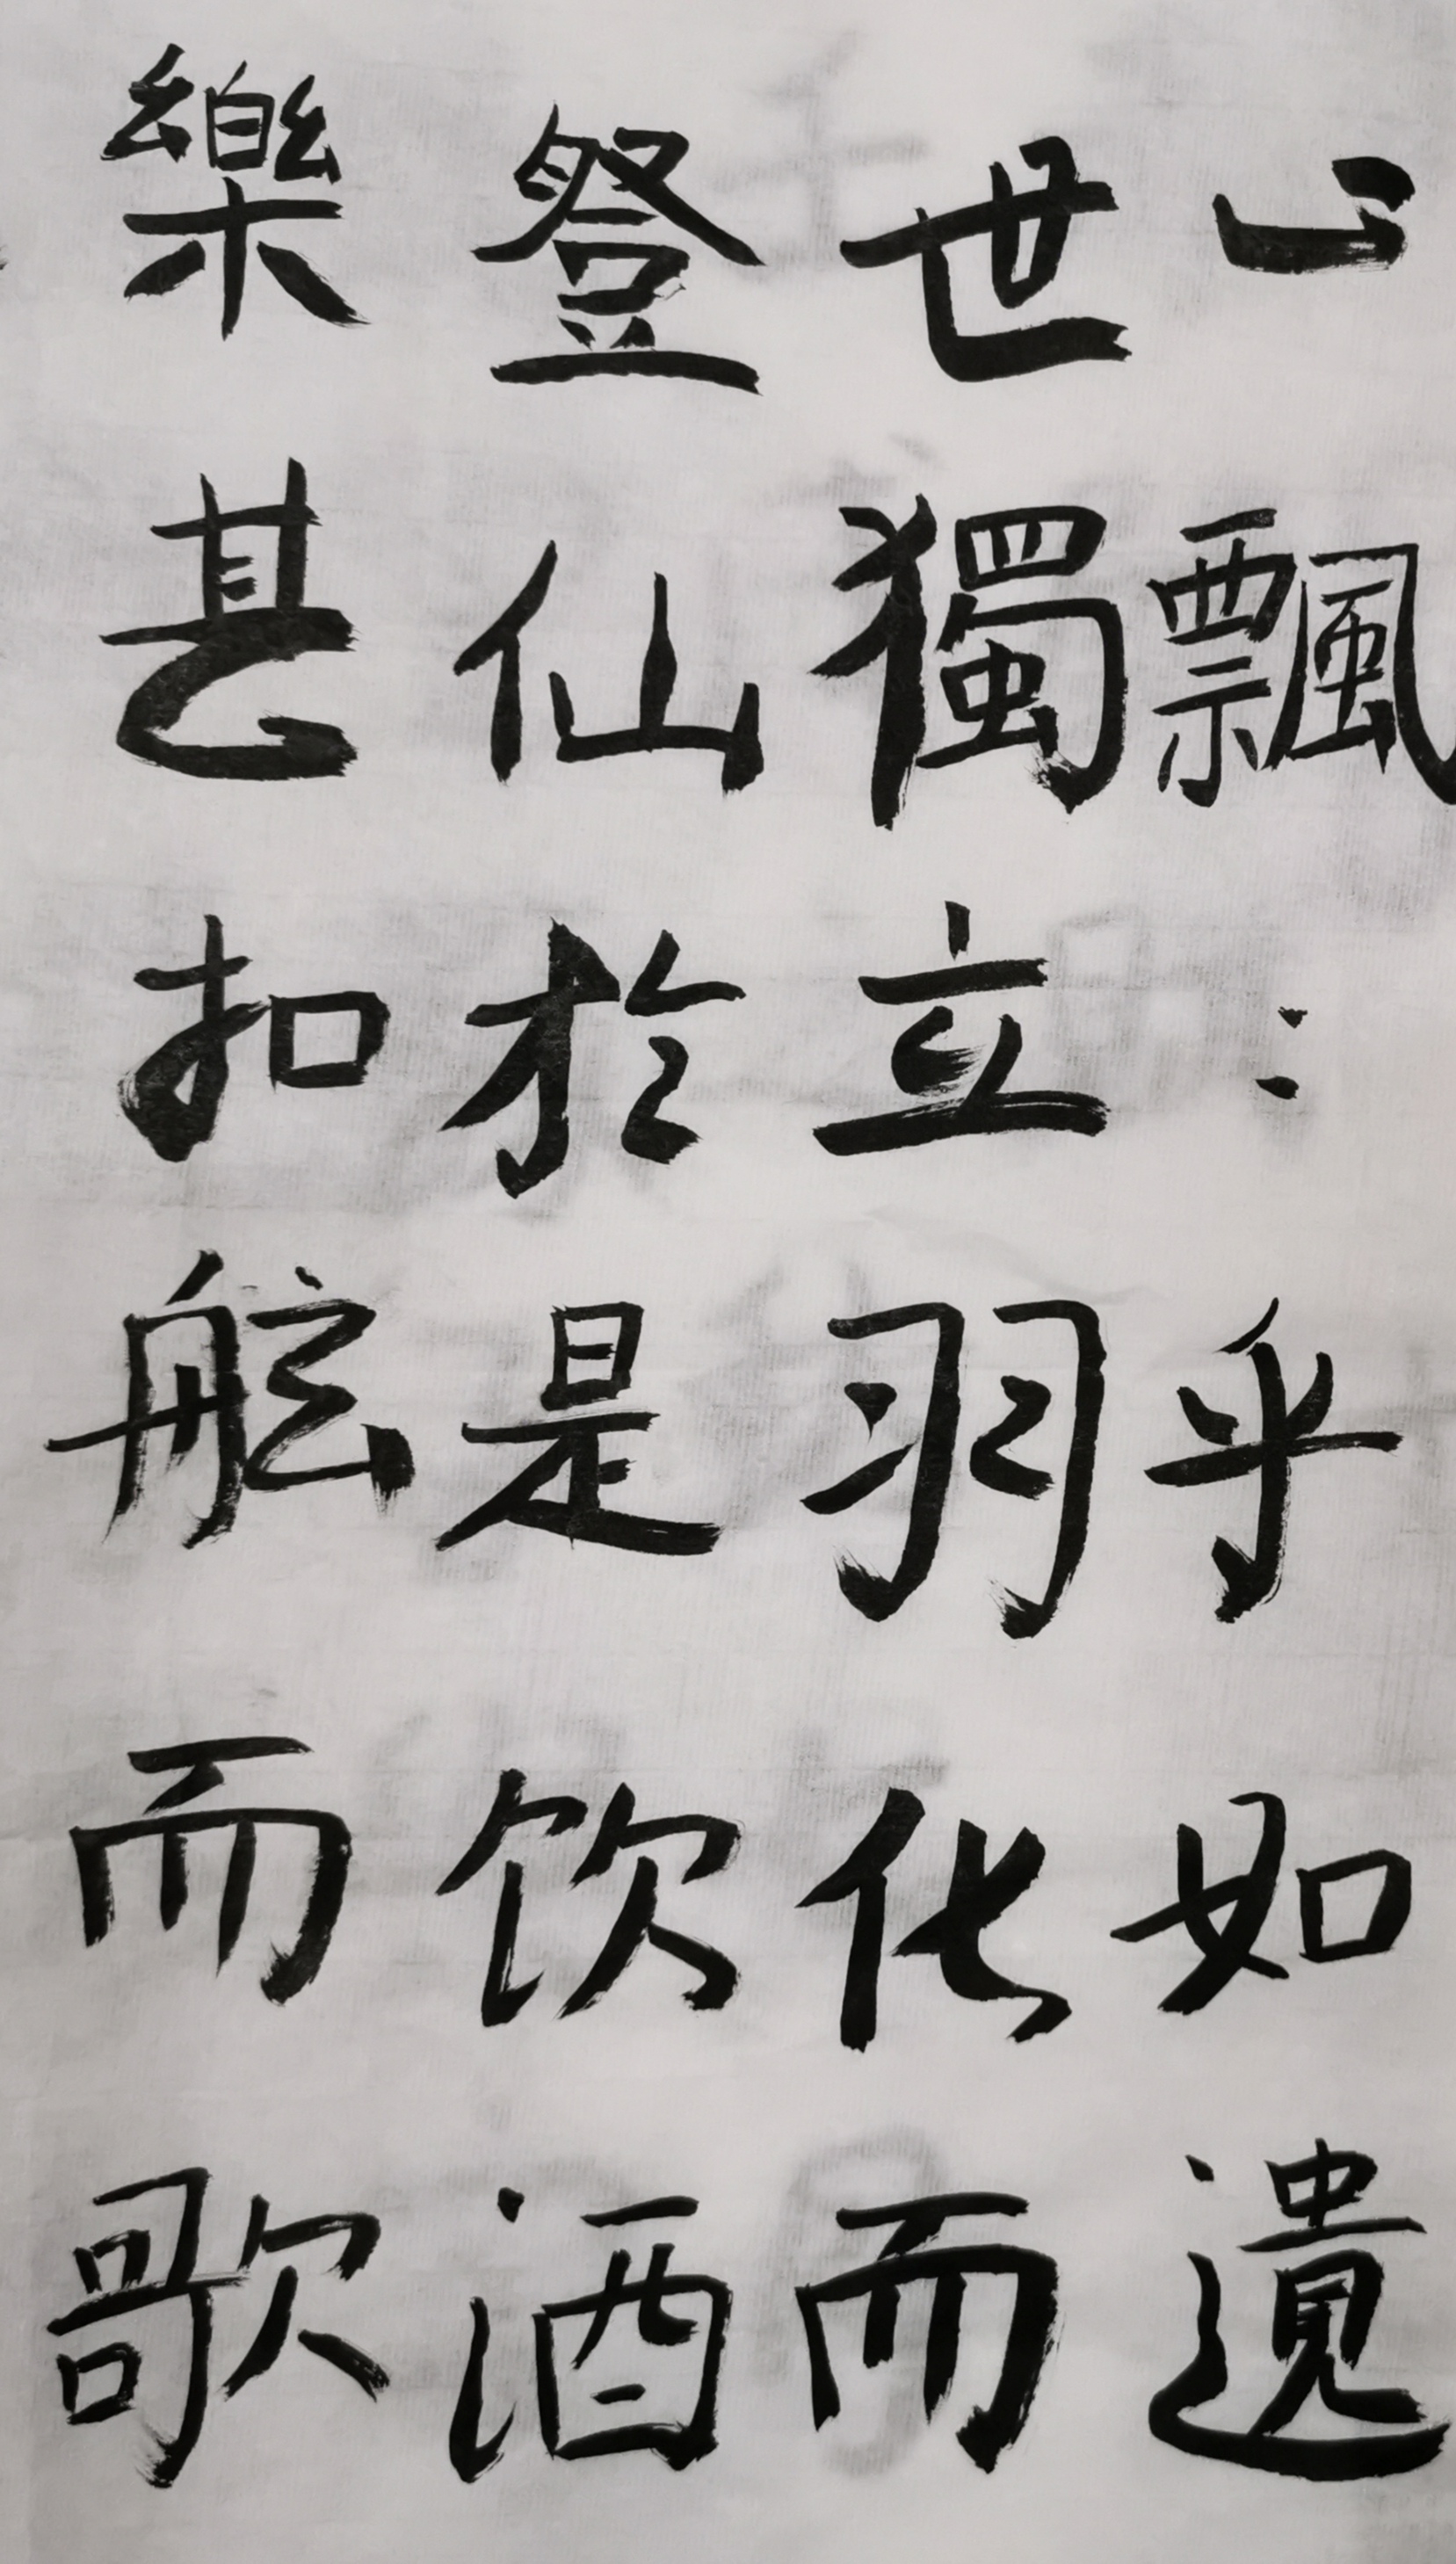 止飄々乎如遺
世獨立羽化而
登仙於是饮酒
樂甚扣舷而歌